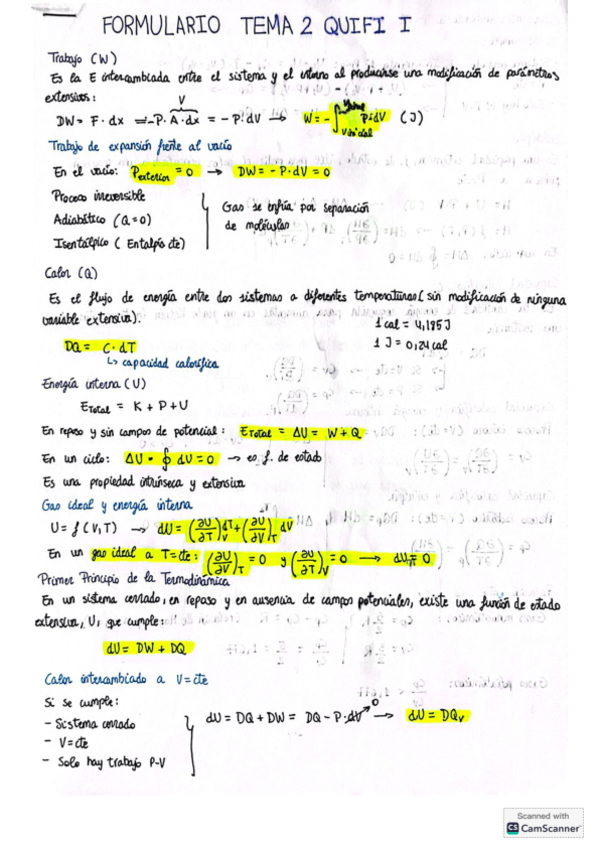 FORMULARIO TEMA 2 QUIFI I
Trabajo (W)
Es la E intercambiada entre el sistema y el entorno al producirse una modificación de parámetros
extensivos:
V
DW = F · dx = -P · A · dx = - P · dV → W = - ∫ P · dV (J)
V inicial
Trabajo de expansión frente al vacío
En el vacío: P exterior = 0 → DW = - P · dV = 0
Proceso irreversible
Adiabático (Q = 0)
Isentálpico (Entalpía cte)
Gas se enfría por separación
de moléculas
Calor (Q)
Es el flujo de energía entre dos sistemas a diferentes temperaturas (sin modificación de ninguna
variable extensiva).
1 cal = 4,185 J
1 J = 0,24 cal
DQ = C · dT
↳ capacidad calorífica
Energía interna (U)
E Total = K + P + U
En reposo y sin campos de potencial: E Total = ΔU = W + Q
En un ciclo: ΔU = ∮ dU = 0 → es f. de estado
Es una propiedad intrínseca y extensiva
Gas ideal y energía interna
U = f (V, T) → dU = (∂U/∂T)V dT + (∂U/∂V)T dV
En un gas ideal a T = cte: (∂U/∂V)T = 0 y (∂U/∂T)V = 0 → dU = 0
Primer Principio de la Termodinámica
En un sistema cerrado, en reposo y en ausencia de campos potenciales, existe una función de estado
extensiva, U, que cumple:
dU = DW + DQ
Calor intercambiado a V = cte
Si se cumple:
- Sistema cerrado
- V = cte
- Solo hay trabajo P-V
dU = DQ + DW = DQ - P · dV → 0 → dU = DQv
Scanned with
CS CamScanner